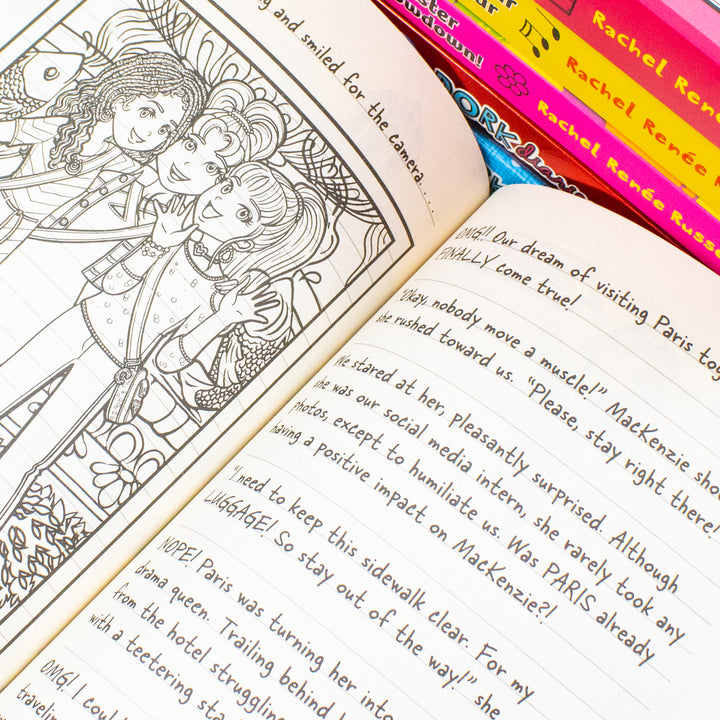 ng and smiled for the camera. . . .
OMG!! Our dream of visiting Paris tog
FINALLY come true!
"Okay, nobody move a muscle!" MacKenzie sho
she rushed toward us. "Please, stay right there.
We stared at her, pleasantly surprised. Although
she was our social media intern, she rarely took any
photos, except to humiliate us. Was PARIS already
having a positive impact on MacKenzie?!
"I need to keep this sidewalk clear. For my
LUGGAGE! So stay out of the way!" she
NOPE! Paris was turning her into
drama queen. Trailing behind
from the hotel struggling
with a teetering sta
OMG! I coul
traveling
ster
owdown!
ur
Rachel René
Rachel Renée R
Rachel Renée Russe
DORK diaries